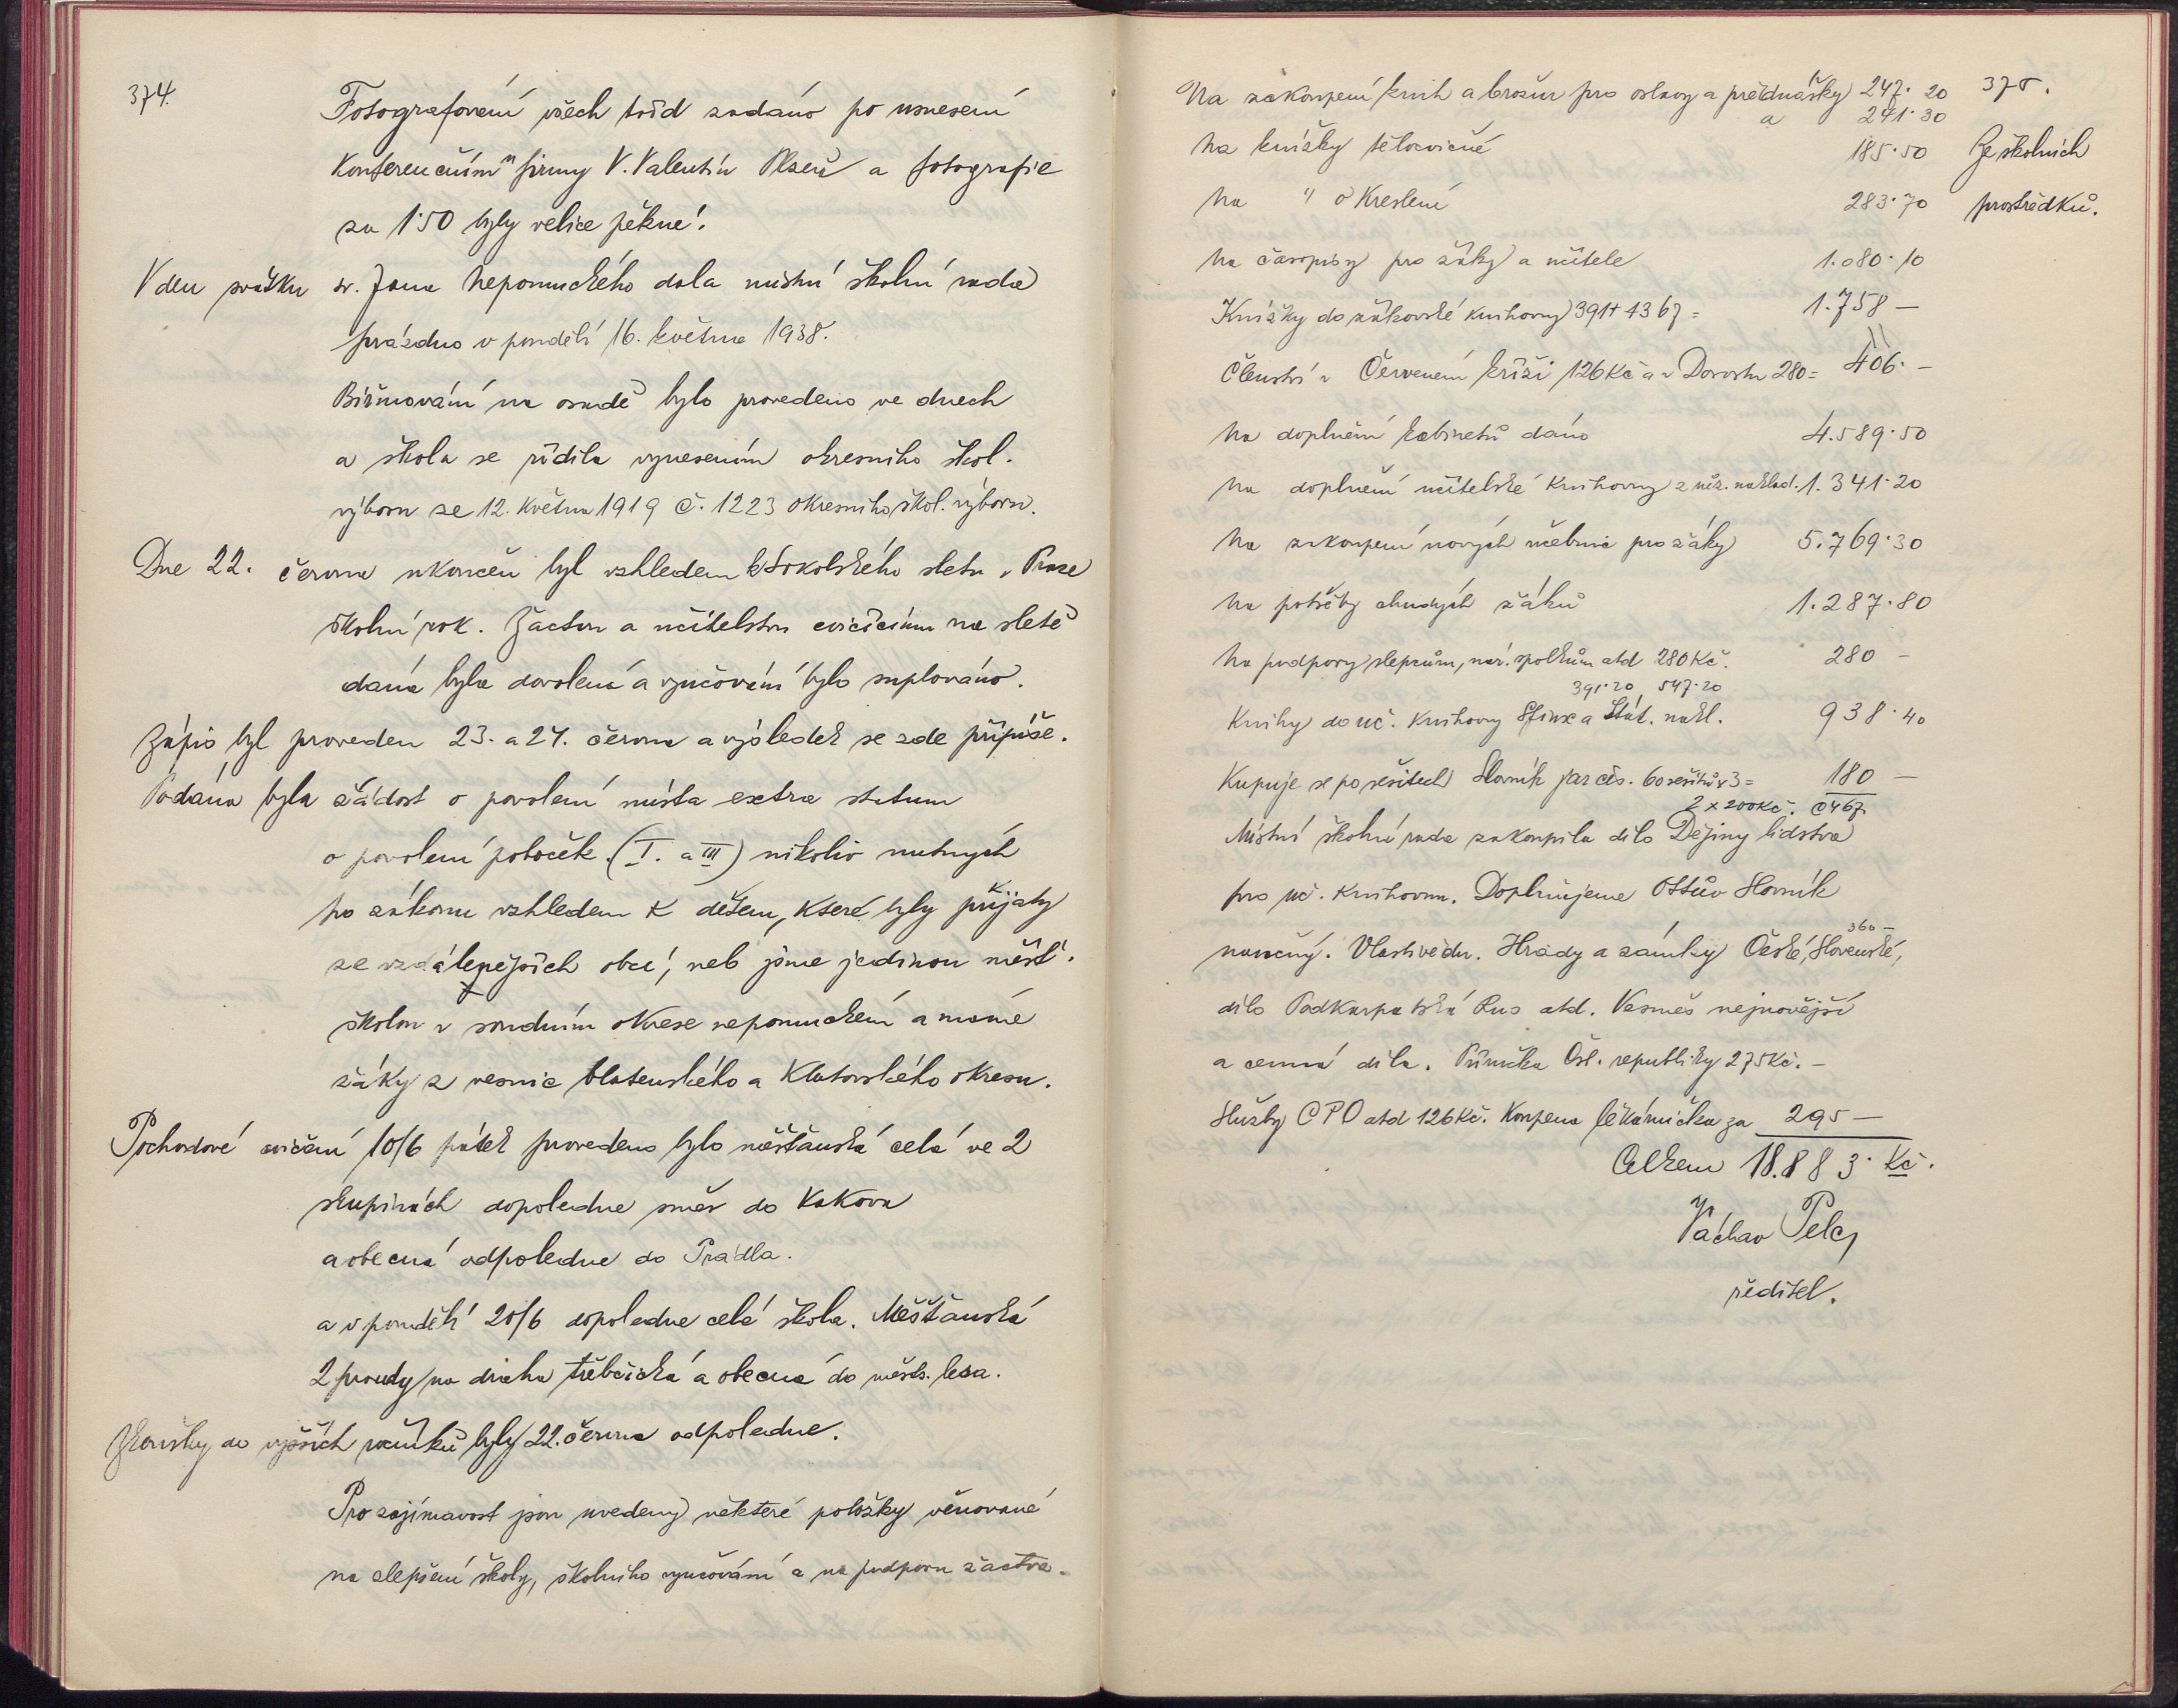 374.
Fotografování všech tříd zadáno po usnesení
konferenčním firmy V. Valentin Plzeň a fotografie
za 1·50 byly velice pěkné!
V den svátku sv. Jana Nepomuckého dala místní školní rada
prázdno v pondělí 16. května 1938.
Biřmování na osadě bylo provedeno ve dnech
a škola se řídila vynesením okresního škol.
výboru ze 12. května 1919 č. 1223 okresního škol. výboru.
Dne 22. června ukončen byl vzhledem k Sokolského sletu v Praze
školní rok. Žactvu a učitelstvu cvičícímu na sletě
dána byla dovolená a vyučování bylo suplováno.
Zápis byl proveden 23. a 24. června a výsledek se zde připíše.
Podána byla žádost o povolení místa extra statum
o povolení poboček (I. a III) nikoliv nutných
po zákonu vzhledem k dětem, které byly přijaty
ze vzdálenějších obcí, neb jsme jedinou měšť.
školou v soudním okrese nepomuckém a máme
žáky z vesnic blatenského a Klatovského okresu.
Pochodové cvičení 10/6 pátek provedeno bylo měšťanská celá ve 2
skupinách dopoledne směr do Kokova
a obecná odpoledne do Prádla.
a v pondělí 20/6 dopoledne celá škola. Měšťanská
2 proudy na dráhu třebčická a obecná do městs. lesa.
Zkoušky do vyšších ročníků byly 22. června odpoledne.
Pro zajímavost jsou uvedeny některé položky věnované
na zlepšení školy, školního vyučování a na podporu žactva.
Na zakoupení knih a brožur pro oslavy a přednášky 247·20 375.
a 241·30
Na knížky tělocvičné 185·50 Ze školních
Na " o Kreslení 283·70 prostředků.
Na časopisy pro žáky a učitele 1.080·10
Knížky do žákovské knihovny 391+1367= 1.758 —
Členství v Červeném kříži 126 Kč a v Dorostu 280= 406·—
Na doplnění kabinetů dáno 4.589·50
Na doplnění učitelské knihovny z růz. naklad. 1.341·20
Na zakoupení nových učebnic pro žáky 5.769·30
Na potřeby chudých žáků 1.287·80
Na podpory slepcům, nár. spolkům atd 280 Kč. 280 —
391·20 547·20
Knihy do uč. knihovny Sfinx a Stát. nakl. 938·40
Kupuje se po sešitech Slovník jaz čes. 60 sešitů x 3= 180 —
2 x 200 Kč.
Místní školní rada zakoupila dílo Dějiny lidstva
pro uč. knihovnu. Doplňujeme Ottův Slovník
360 —
naučný. Vlastivědu. Hrady a zámky České, Slovenské,
dílo Podkarpatská Rus atd. Vesměs nejnovější
a cenná díla. Příručka Čsl. republiky 275 Kč. —
Služby CPO atd 126 Kč. Koupena lékárnička za 295 —
Celkem 18.883· Kč.
Václav Pelc,
ředitel.